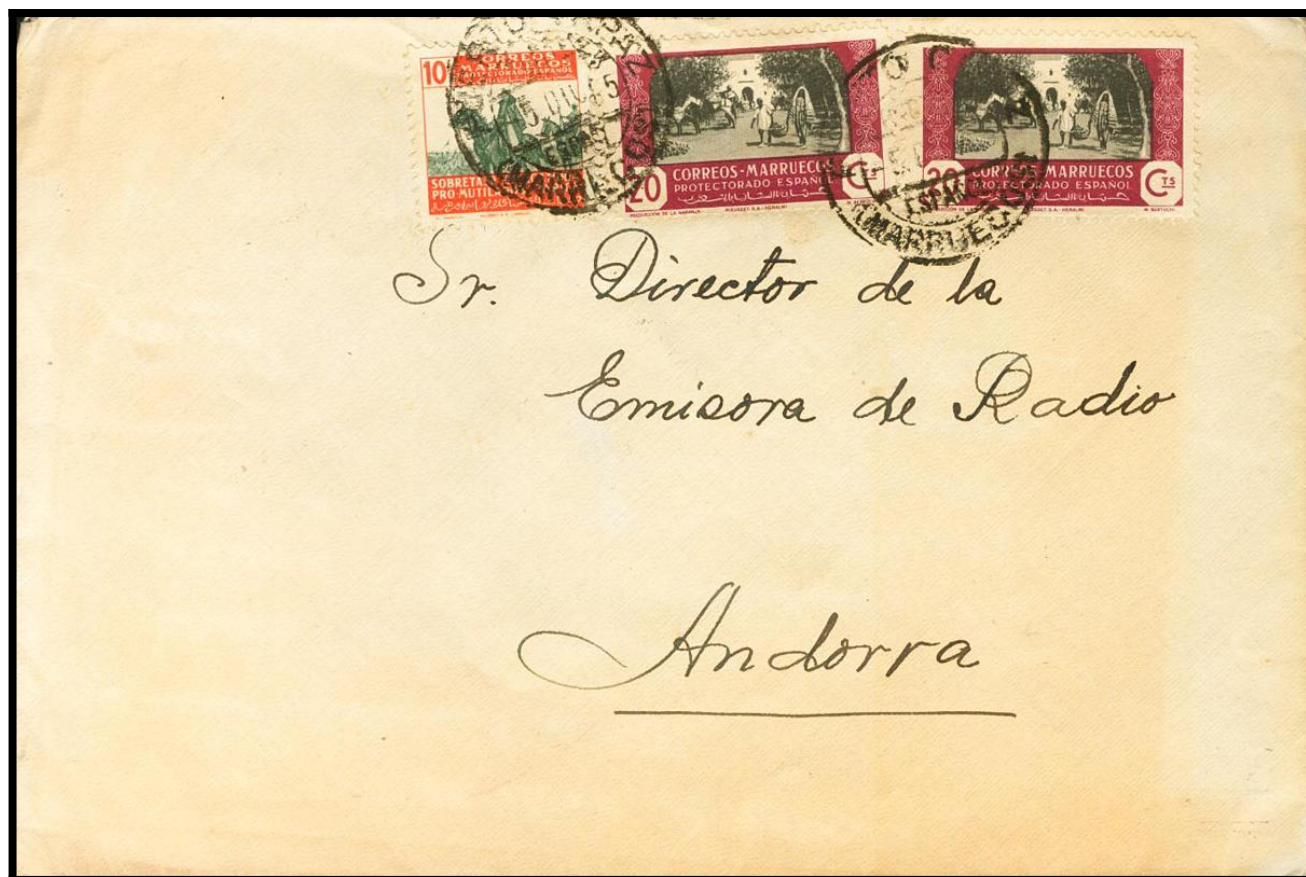 10
CORREOS
MARRUECOS
PROTECTORADO ESPAÑOL
PRO MUTIL
20 CORREOS-MARRUECOS
PROTECTORADO ESPAÑOL
CTS
20 CORREOS-MARRUECOS
PROTECTORADO ESPAÑOL
CTS
(MARRUECOS)
(MARRUECOS)
Sr. Director de la
Emisora de Radio
Andorra